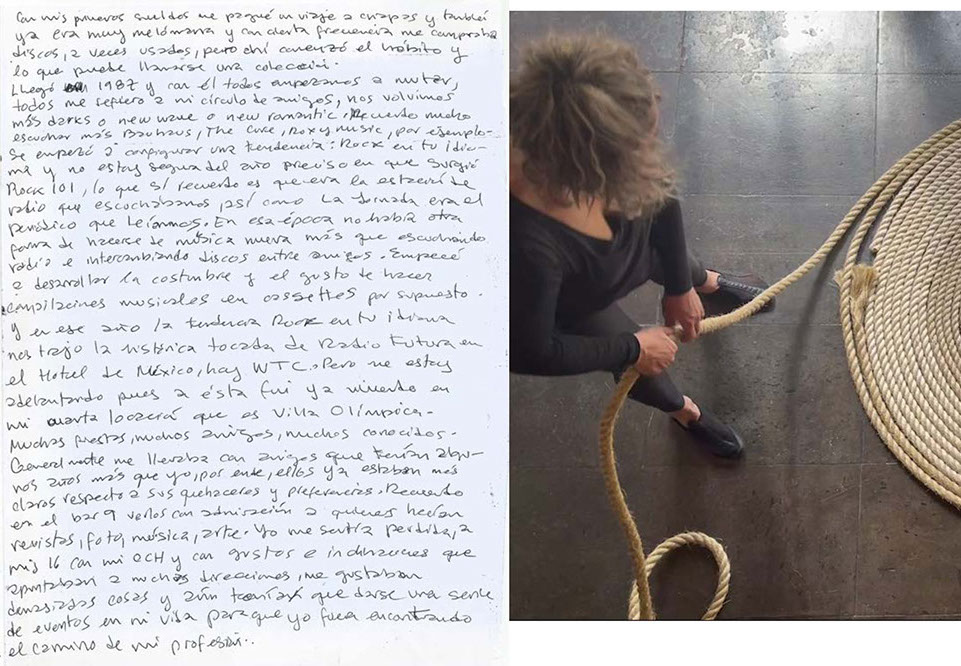 Con mis primeros sueldos me pagué un viaje a chiapas y también
ya era muy melómana y con cierta frecuencia me compraba
discos, a veces usados, pero ahí comenzó el hábito y
lo que puede llamarse una colección.
Llegó 1987 y con él todos empezamos a mutar,
todos me refiero a mi círculo de amigos, nos volvimos
más darks o new wave o new romantic. Recuerdo mucho
escuchar más Bauhaus, The Cure, Roxy music, por ejemplo-
Se empezó a configurar una tendencia: Rock en tu idio-
ma y no estoy segura del año preciso en que surgió
Rock 101, lo que sí recuerdo es que era la estación de
radio que escuchábamos, así como La Jornada era el
periódico que leíamos. En esa época no había otra
forma de hacerse de música nueva más que escuchando
radio e intercambiando discos entre amigos. Empecé
a desarrollar la costumbre y el gusto de hacer
compilaciones musicales en cassettes por supuesto.
Y en ese año la tendencia Rock en tu idioma
nos trajo la histórica tocada de Radio Futura en
el Hotel de México, hoy WTC. Pero me estoy
adelantando pues a ésta fui ya viviendo en
mi cuarta que es Villa Olímpica.
Muchas fiestas, muchos amigos, muchos conocidos.
Generalmente me llevaba con amigos que tenían algu-
nos años más que yo, por ente, ellos ya estaban más
claros respecto a sus quehaceres y preferencias. Recuerdo
en el bar 9 verlos con admiración a quienes hacían
revistas, foto, música, arte. Yo me sentía perdida, a
mis 16 con mi CCH y con gustos e inclinaciones que
apuntaban a muchas direcciones, me gustaban
demasiadas cosas y aún tenían que darse una serie
de eventos en mi vida para que yo fuera encontrando
el camino de mi profesión..